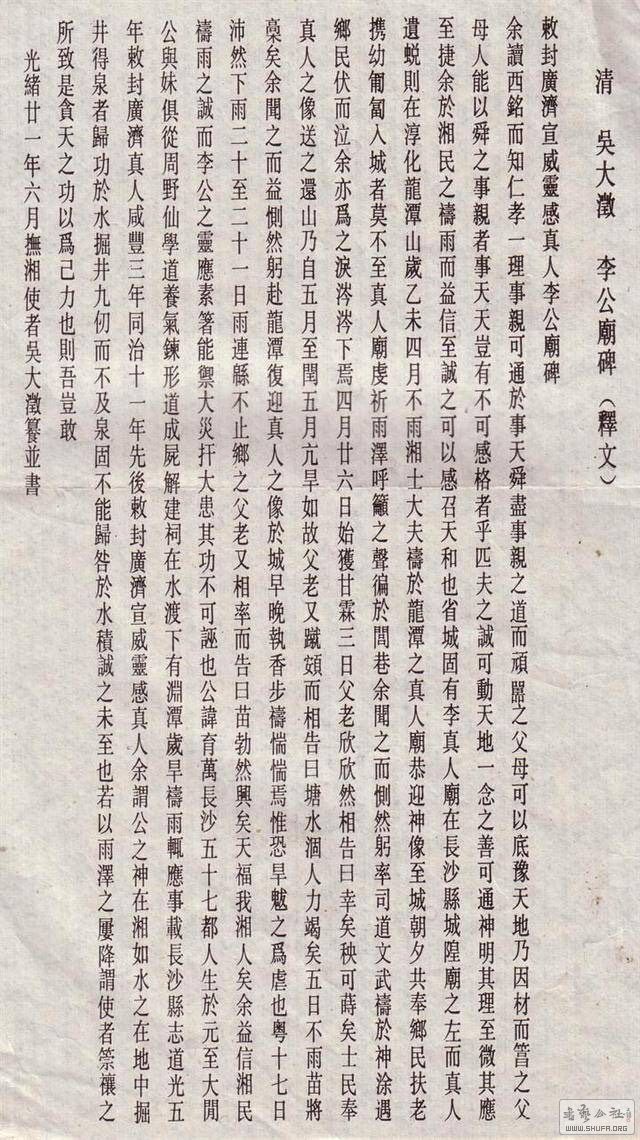 清　吳大澂　李公廟碑（釋文）
敕封廣濟宣威靈感真人李公廟碑
余讀西銘而知仁孝一理事親可通於事天舜盡事親之道而頑嚚之父母可以底豫天地乃因材而篤之父
母人能以舜之事親者事天天豈有不可感格者乎匹夫之誠可動天地一念之善可通神明其理至微其應
至捷余於湘民之禱雨而益信至誠之可以感召天和也省城固有李真人廟在長沙縣城隍廟之左而真人
遺蛻則在淳化龍潭山歲乙未四月不雨湘士大夫禱於龍潭之真人廟恭迎神像至城朝夕共奉鄉民扶老
携幼匍匐入城者莫不至真人廟虔祈雨澤呼籲之聲徧於閭巷余聞之而惻然躬率司道文武禱於神涂遇
鄉民伏而泣余亦爲之淚涔涔下焉四月廿六日始獲甘霖三日父老欣欣然相告曰幸矣秧可蒔矣士民奉
真人之像送之還山乃自五月至閏五月亢旱如故父老又蹴頞而相告曰塘水涸人力竭矣五日不雨苗將
稾矣余聞之而益惻然躬赴龍潭復迎真人之像於城早晚執香步禱惴惴焉惟恐旱魃之爲虐也粵十七日
沛然下雨二十至二十一日雨連緜不止鄉之父老又相率而告曰苗勃然興矣天福我湘人矣余益信湘民
禱雨之誠而李公之靈應素箸能禦大災扞大患其功不可誣也公諱育萬長沙五十七都人生於元至大閒
公與妹俱從周野仙學道養氣鍊形道成屍解建祠在水渡下有淵潭歲旱禱雨輒應事載長沙縣志道光五
年敕封廣濟真人咸豐三年同治十一年先後敕封廣濟宣威靈感真人余謂公之神在湘如水之在地中掘
井得泉者歸功於水掘井九仞而不及泉固不能歸咎於水積誠之未至也若以雨澤之屢降謂使者禜禳之
所致是貪天之功以爲己力也則吾豈敢
光緒廿一年六月撫湘使者吳大澂篹並書
書藝公社
WWW.SHUFA.ORG